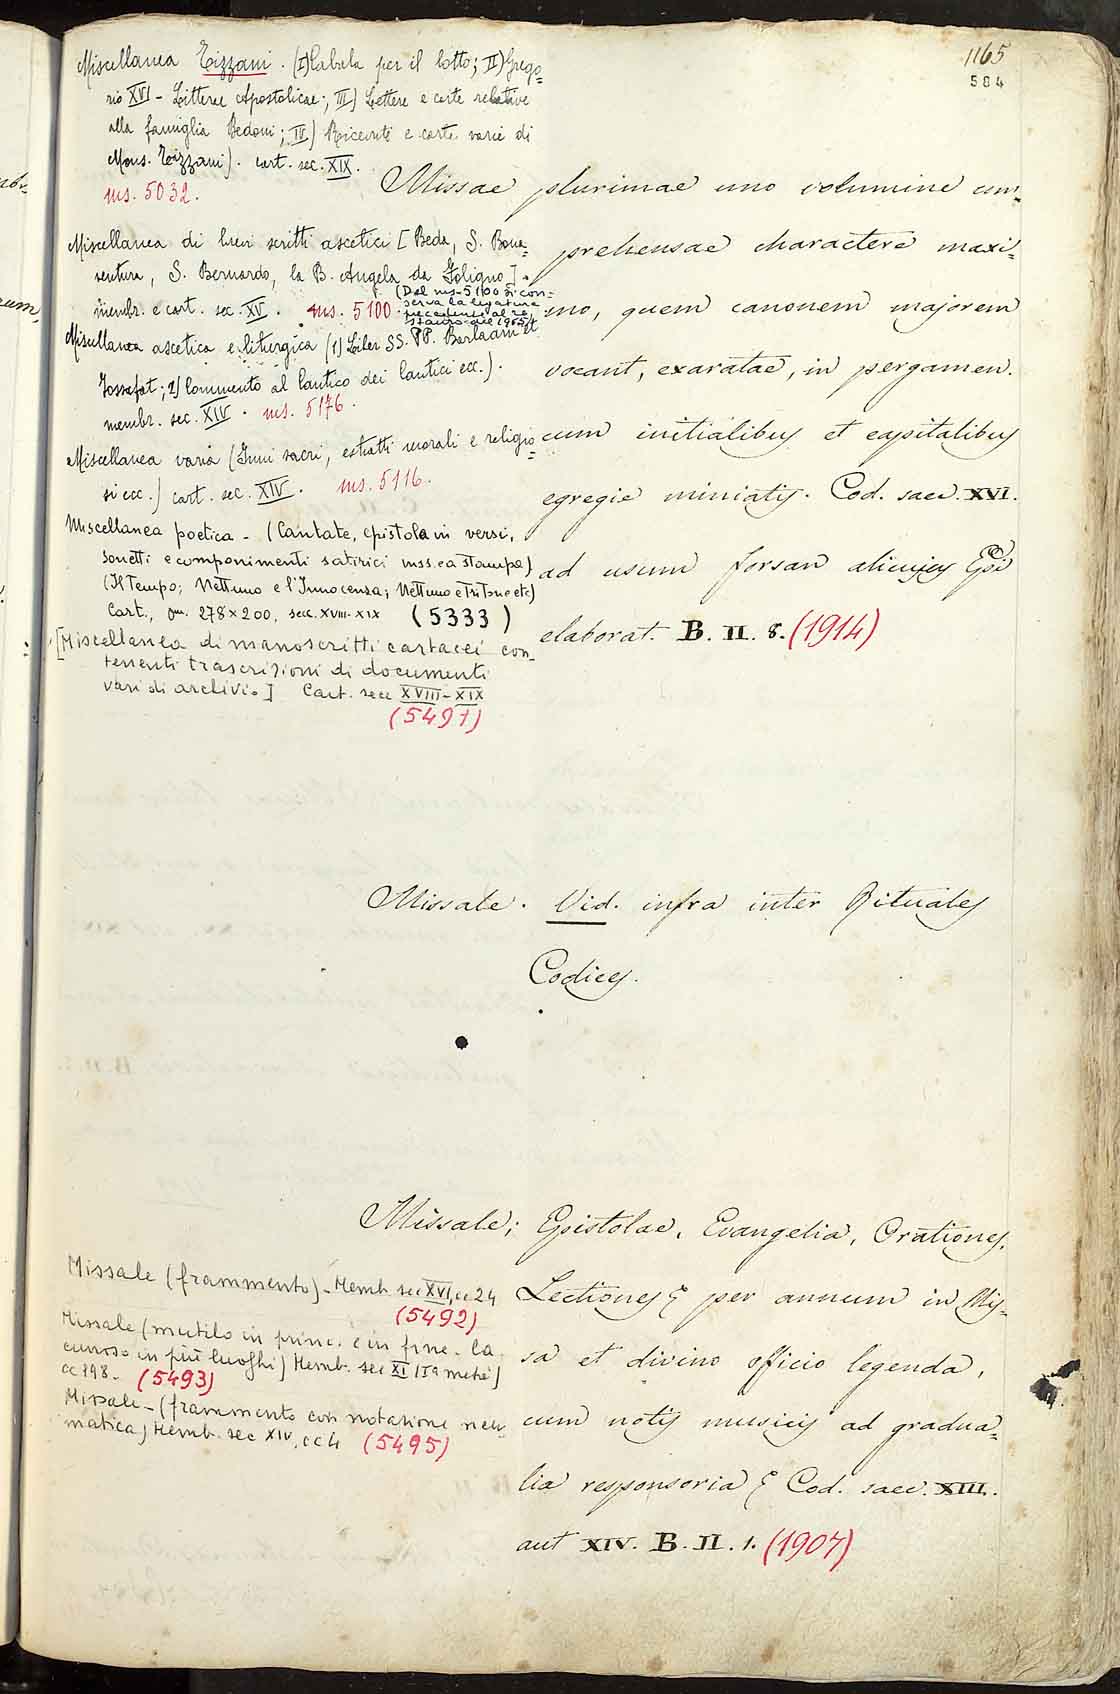 1165
584
Miscellanea Tizzani. (I) Cabala per il lotto; II) Grego=
rio XVI - Litterae Apostolicae; III) Lettere e carte relative
alla famiglia Bedoni; IV) Ricevute e carte varie di
Mons. Tizzani). cart. sec. XIX.
ms. 5032.
Miscellanea di brevi scritti ascetici [Beda, S. Bona=
ventura, S. Bernardo, la B. Angela da Foligno].
membr. e cart. sec. XV. ms. 5100
(Del ms. 5100 si con-
serva la legatura
precedente al re
stauro del 1965)
Miscellanea ascetica e liturgica (1) Liber SS. PP. Barlaam et
Josafat; 2) Commento al Cantico dei Cantici ecc.).
membr. sec. XIV. ms. 5176.
Miscellanea varia (Inni sacri, estratti morali e religio=
si ecc.) cart. sec. XIV. ms. 5116.
Miscellanea poetica - (Cantate, epistola in versi,
sonetti e componimenti satirici mss. e a stampa)
(Il Tempo; Nettuno e l'Innocenza; Nettuno e Tritone etc)
Cart., mm. 278×200, secc. XVIII-XIX (5333)
[Miscellanea di manoscritti cartacei con_
tenenti trascrizioni di documenti
vari di archivio] Cart. secc XVIII-XIX
(5491)
Missae plurimae uno volumine com=
prehensae charactere maxi=
mo, quem canonem majorem
vocant, exaratae, in pergamen.
cum initialibus et capitalibus
egregie miniatis. Cod. saec. XVI.
ad usum forsan alicujus Epi
elaborat. B. II. 8. (1914)
Missale. Vid. infra inter Rituales
Codices.
Missale; Epistolae, Evangelia, Orationes,
Lectiones & per annum in Mis=
sa et divino officio legenda,
cum notis musicis ad gradua=
lia responsoria & Cod. saec. XIII.
aut XIV. B. II. 1. (1907)
Missale (frammento) - Memb. sec XVI, cc 24
(5492)
Missale (mutilo in princ. e in fine - la
cunoso in più luoghi) Memb. sec XI (IIa metà)
cc 198. (5493)
Missale - (frammento con notazione neu
matica) Memb. sec XIV, cc 4 (5495)